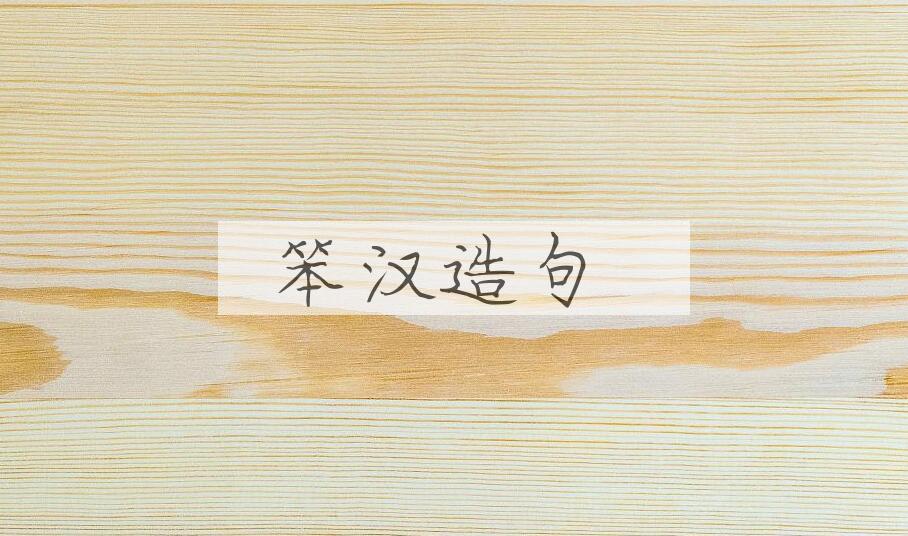 笨汉造句